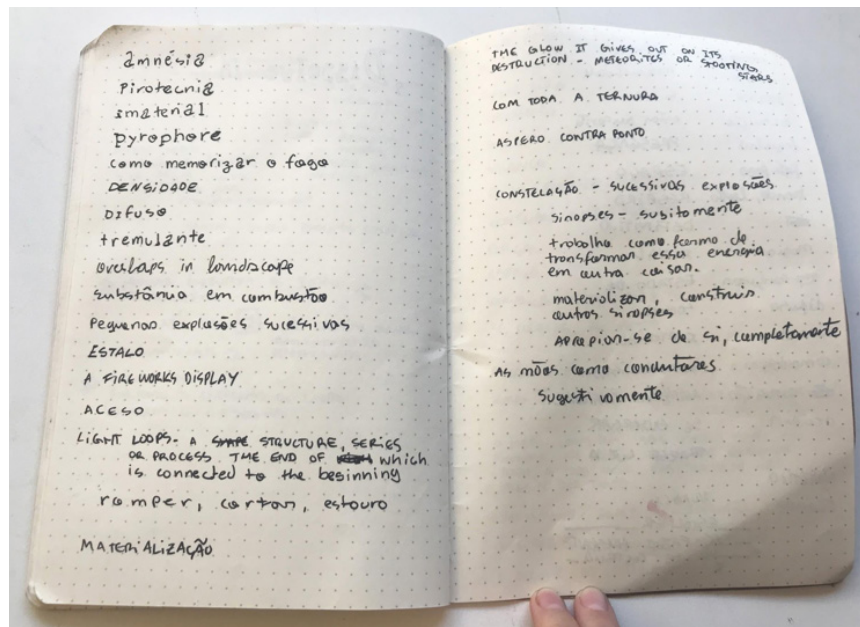 amnésia
Pirotecnia
imaterial
pyrophore
como memorizar o fogo
DENSIDADE
DIFUSO
tremulante
overlaps in landscape
substância em combustão
Pequenas explosões sucessivas
ESTALO
A FIREWORKS DISPLAY
ACESO
LIGHT LOOPS - A SHAPE STRUCTURE, SERIES
OR PROCESS THE END OF which
is connected to the beginning
romper, cortar, estouro
MATERIALIZAÇÃO
THE GLOW IT GIVES OUT ON ITS
DESTRUCTION - METEORITES OR SHOOTING
STARS
COM TODA A TERNURA
ASPERO CONTRA PONTO
CONSTELAÇÃO - SUCESSIVAS EXPLOSÕES
sinopses - subitamente
trabalho como forma de
transformar essa energia
em outra coisas.
materializar, construir
outros sinopses
apropiar-se de si, completamente
AS mãos como condutores
sugestivamente